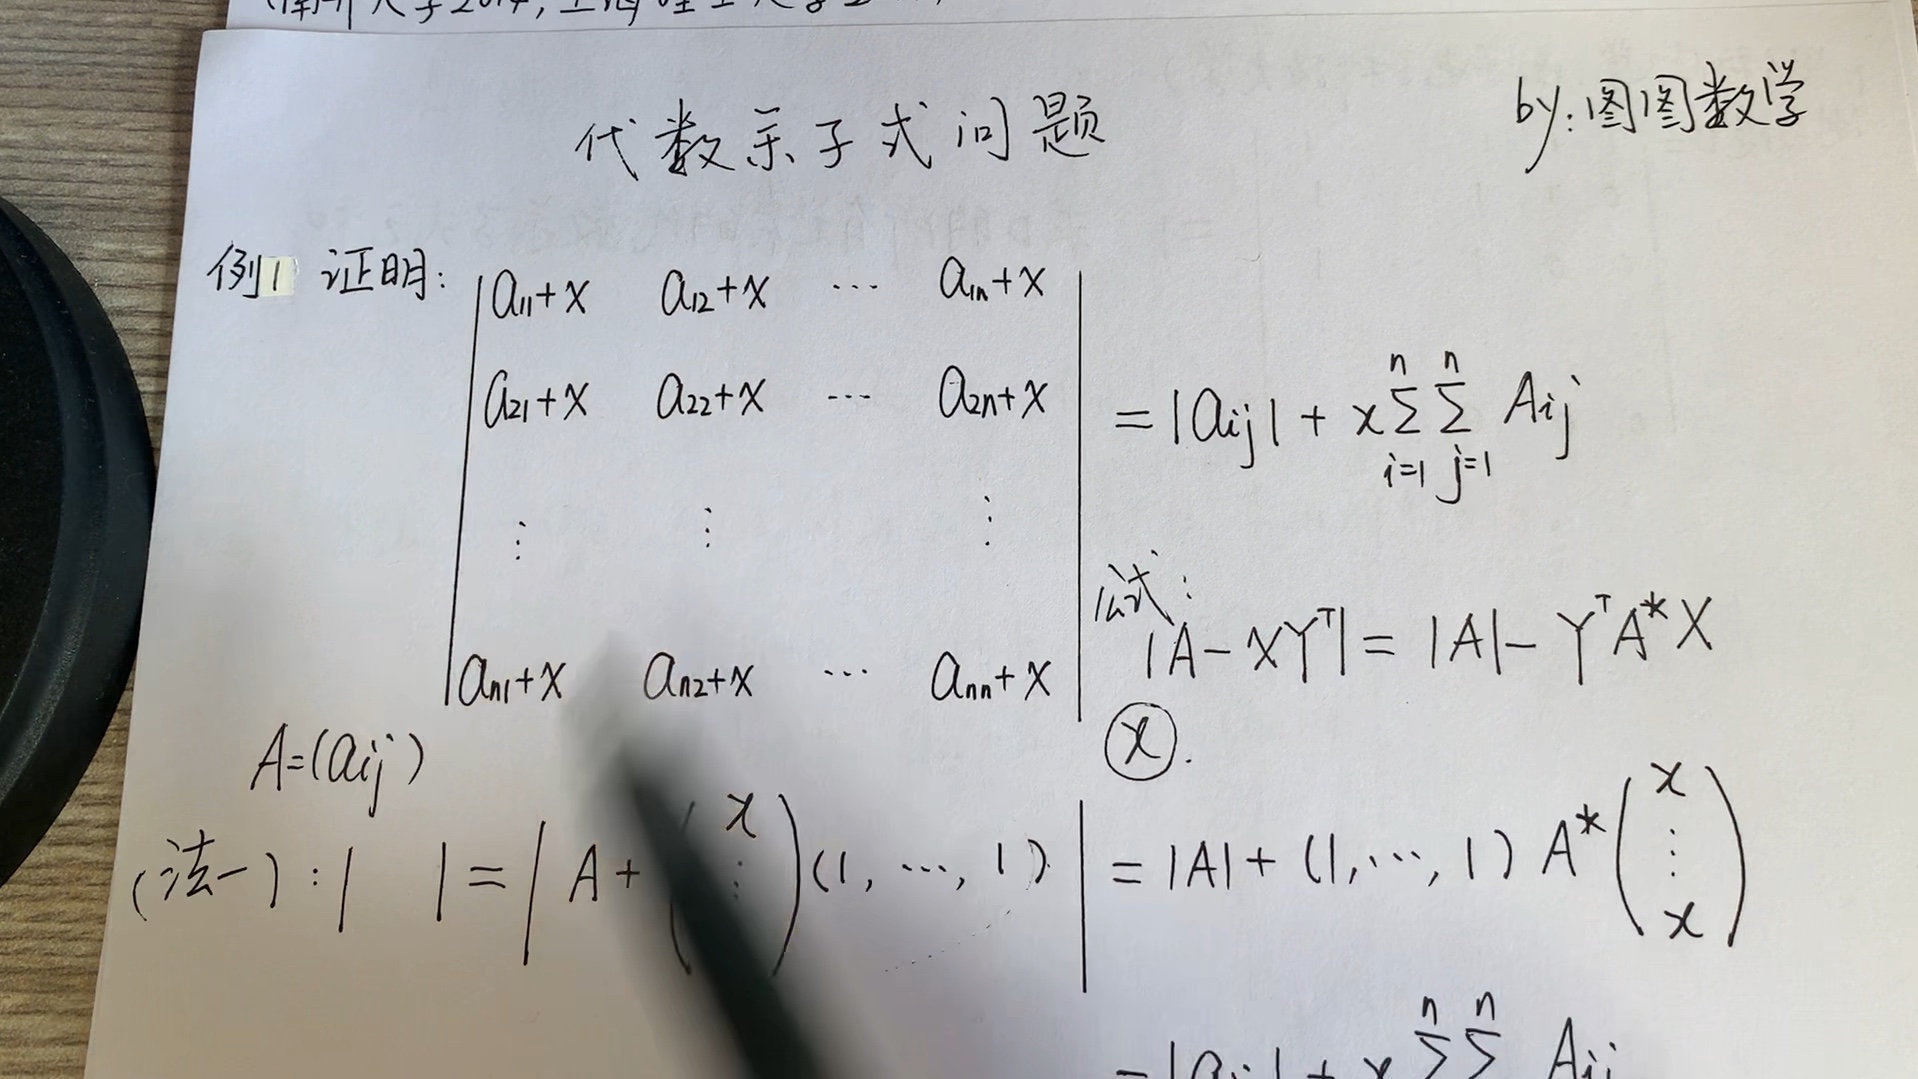 代数余子式问题
by:图图数学
例1 证明:
a₁₁+x a₁₂+x ⋯ a₁ₙ+x
a₂₁+x a₂₂+x ⋯ a₂ₙ+x
⋮ ⋮ ⋮
aₙ₁+x aₙ₂+x ⋯ aₙₙ+x
= |aij| + x∑ⁿᵢ₌₁∑ⁿⱼ₌₁ Aij
公式:
|A-XYᵀ| = |A| - YᵀA*X
x.
A=(aij)
(法一):| | = | A + (x ⋮ )(1, ⋯, 1) | = |A| + (1, ⋯, 1) A* (x ⋮ x)
= |aij| + x ∑ⁿ∑ⁿ Aij